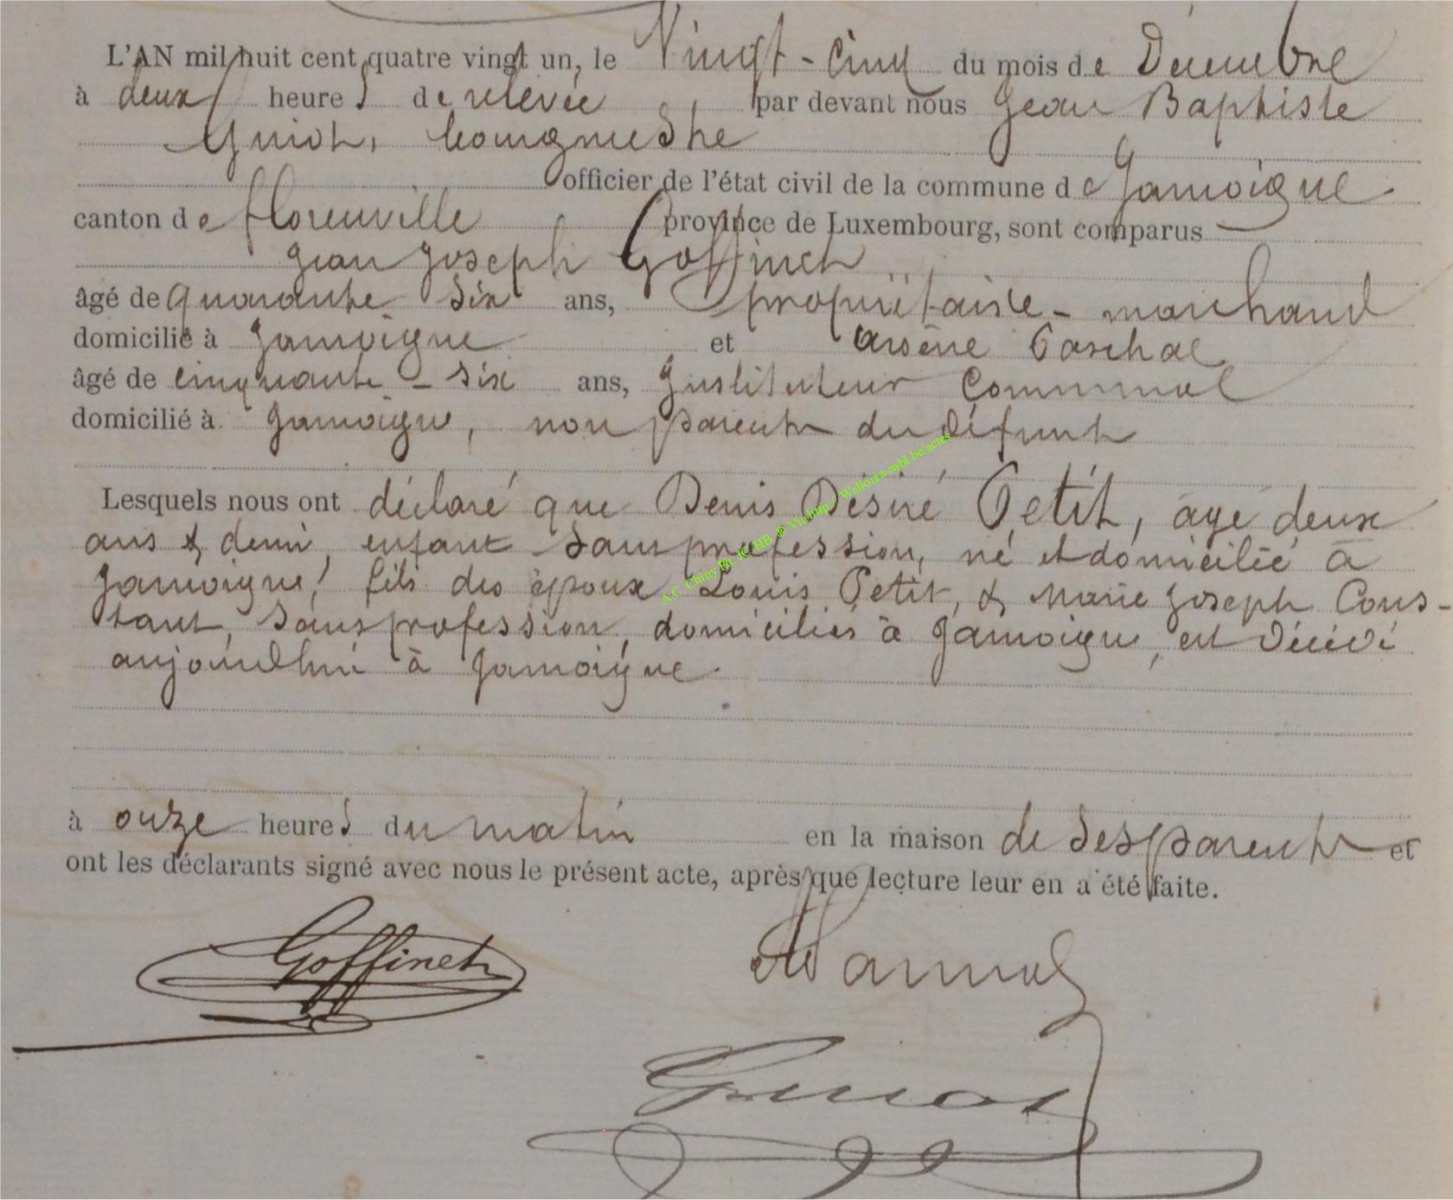 L'AN mil huit cent quatre vingt un, le Vingt-cinq du mois de Décembre
à deux heures de relevée, par devant nous Jean Baptiste
Guiot, bourgmestre
officier de l'état civil de la commune de Jamoigne
canton de florenville province de Luxembourg, sont comparus
Jean Joseph Goffinet
âgé de quarante six ans, propriétaire-marchand
domicilié à Jamoigne et arsène Paschal
âgé de cinquante-six ans, Instituteur Communal
domicilié à Jamoigne, non parents du défunt
Lesquels nous ont déclaré que Denis Désiré Petit, âgé deux
ans & demi, enfant sans profession, né et domicilié à
Jamoigne, fils des époux Louis Petit, & Marie Joseph Cons-
tant, sans profession, domiciliés à Jamoigne, est décédé
aujourdhui à Jamoigne.
à onze heures du matin en la maison de ses parents et
ont les déclarants signé avec nous le présent acte, après que lecture leur en a été faite.
Goffinet
Guiot